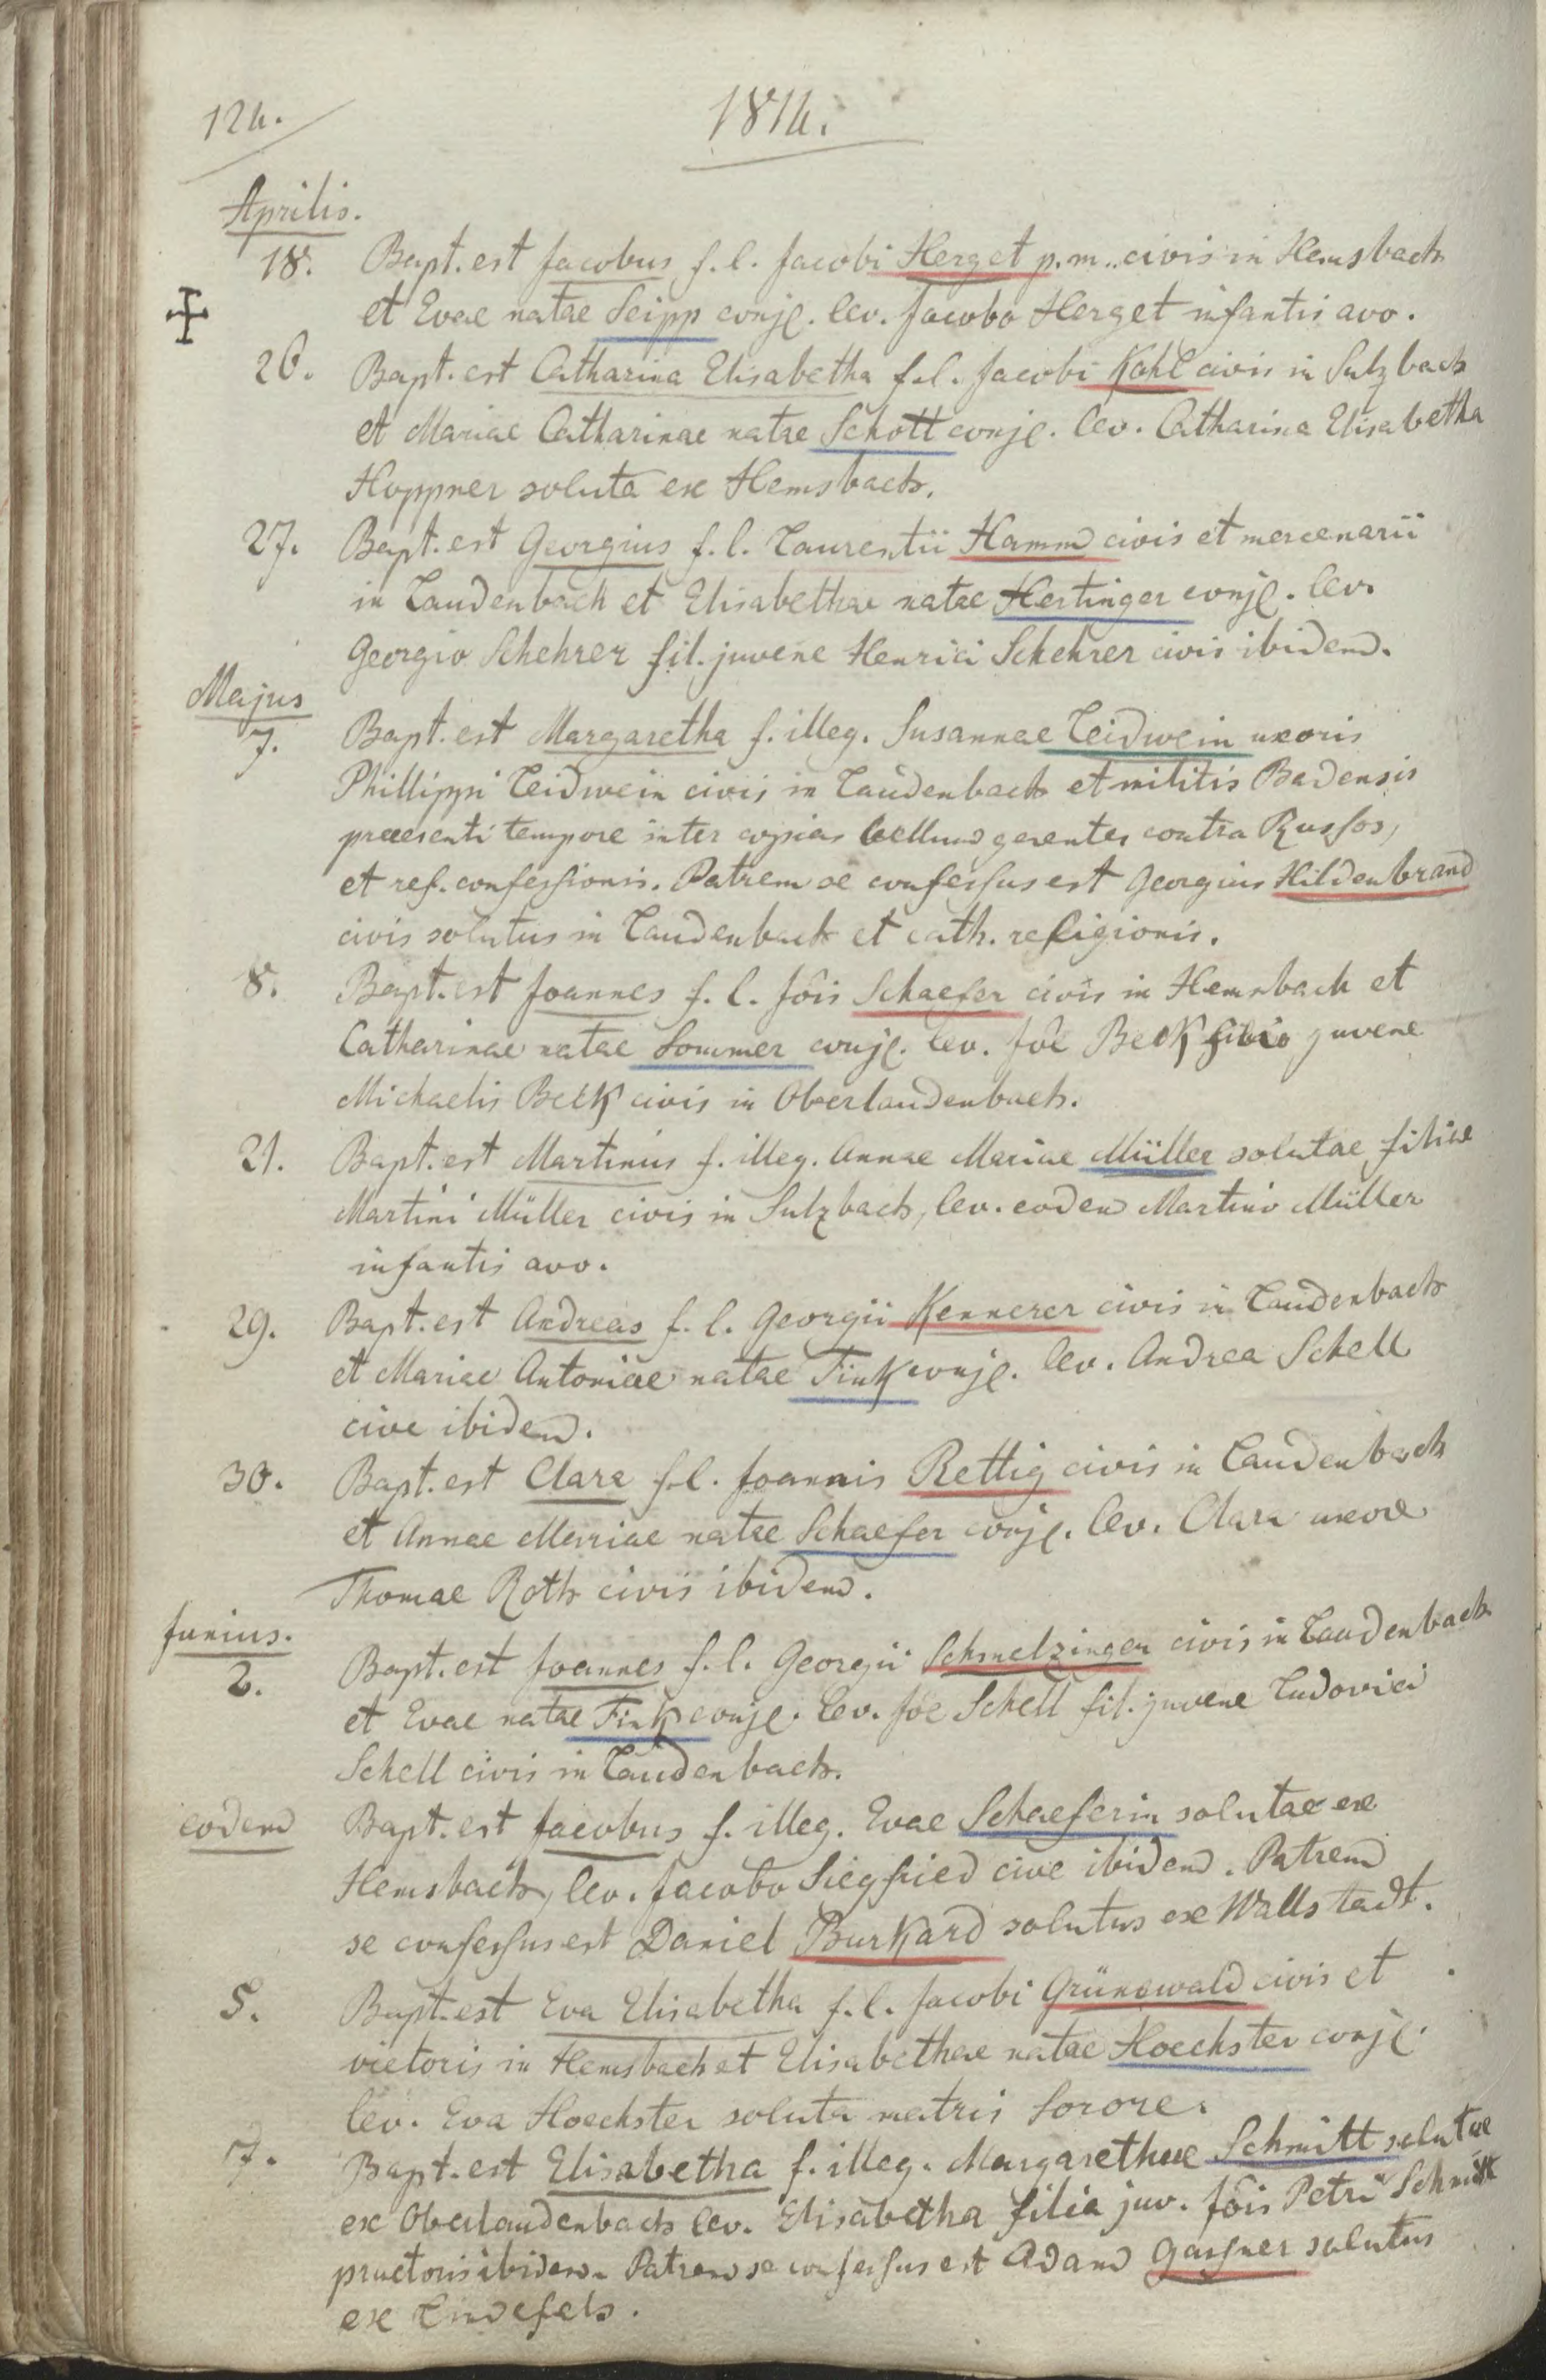 124.
1814.
Aprilis.
18. Bapt. est Jacobus f. l. Jacobi Herget p. m. civis in Hemsbach
et Evae natae Seipp conjg. lev. Jacobo Herget infantis avo.
26. Bapt. est Catharina Elisabetha f. l. Jacobi Kohl civis in Sulzbach
et Mariae Catharinae natae Schott conjg. lev. Catharina Elisabetha
Hoppner soluta ex Hemsbach.
27. Bapt. est Georgius f. l. Laurentii Hamm civis et mercenarii
in Laudenbach et Elisabethae natae Hertinger conjg. lev.
Georgio Schehrer fil. juvene Henrici Schehrer civis ibidem.
Majus
7. Bapt. est Margaretha f. illeg. Susannae Leidwein uxoris
Phillippi Leidwein civis in Laudenbach et militis Badensis
praesenti tempore inter copias bellum gerentes contra Russos,
et ref. confessionis. Patrem se confessus est Georgius Hildenbrand
civis solutus in Laudenbach et cath. religionis.
8. Bapt. est Joannes f. l. Jôis Schaefer civis in Hemsbach et
Catharinae natae Sommer conjg. lev. Jôe Beck filio juvene
Michaelis Beck civis in Oberlaudenbach.
21. Bapt. est Martinus f. illeg. Annae Mariae Müller solutae filiae
Martini Müller civis in Sulzbach, lev. eodem Martino Müller
infantis avo.
29. Bapt. est Andreas f. l. Georgii Kennerer civis in Laudenbach
et Mariae Antoniae natae Fink conjg. lev. Andrea Schell
cive ibidem.
30. Bapt. est Clara f. l. Joannis Rettig civis in Laudenbach
et Annae Mariae natae Schaefer conjg. lev. Clara uxore
Thomae Roth civis ibidem.
Junius.
2. Bapt. est Joannes f. l. Georgii Schmelzinger civis in Laudenbach
et Evae natae Fink conjg. lev. Jôe Schell fil. juvene Ludovici
Schell civis in Laudenbach.
eodem Bapt. est Jacobus f. illeg. Evae Schaeferin solutae ex
Hemsbach, lev. Jacobo Siegfried cive ibidem. Patrem
se confessus est Daniel Burkard solutus ex Wallstadt.
5. Bapt. est Eva Elisabetha f. l. Jacobi Grünewald civis et
vietoris in Hemsbach et Elisabethae natae Hoechster conjg.
lev. Eva Hoechster soluta matris sorore.
7. Bapt. est Elisabetha f. illeg. Margarethae Schmitt solutae
ex Oberlaudenbach lev. Elisabetha filia juv. Jôis Petri Schmitt
praetoris ibidem. Patrem se confessus est Adam Gassner solutus
ex Lindefels.